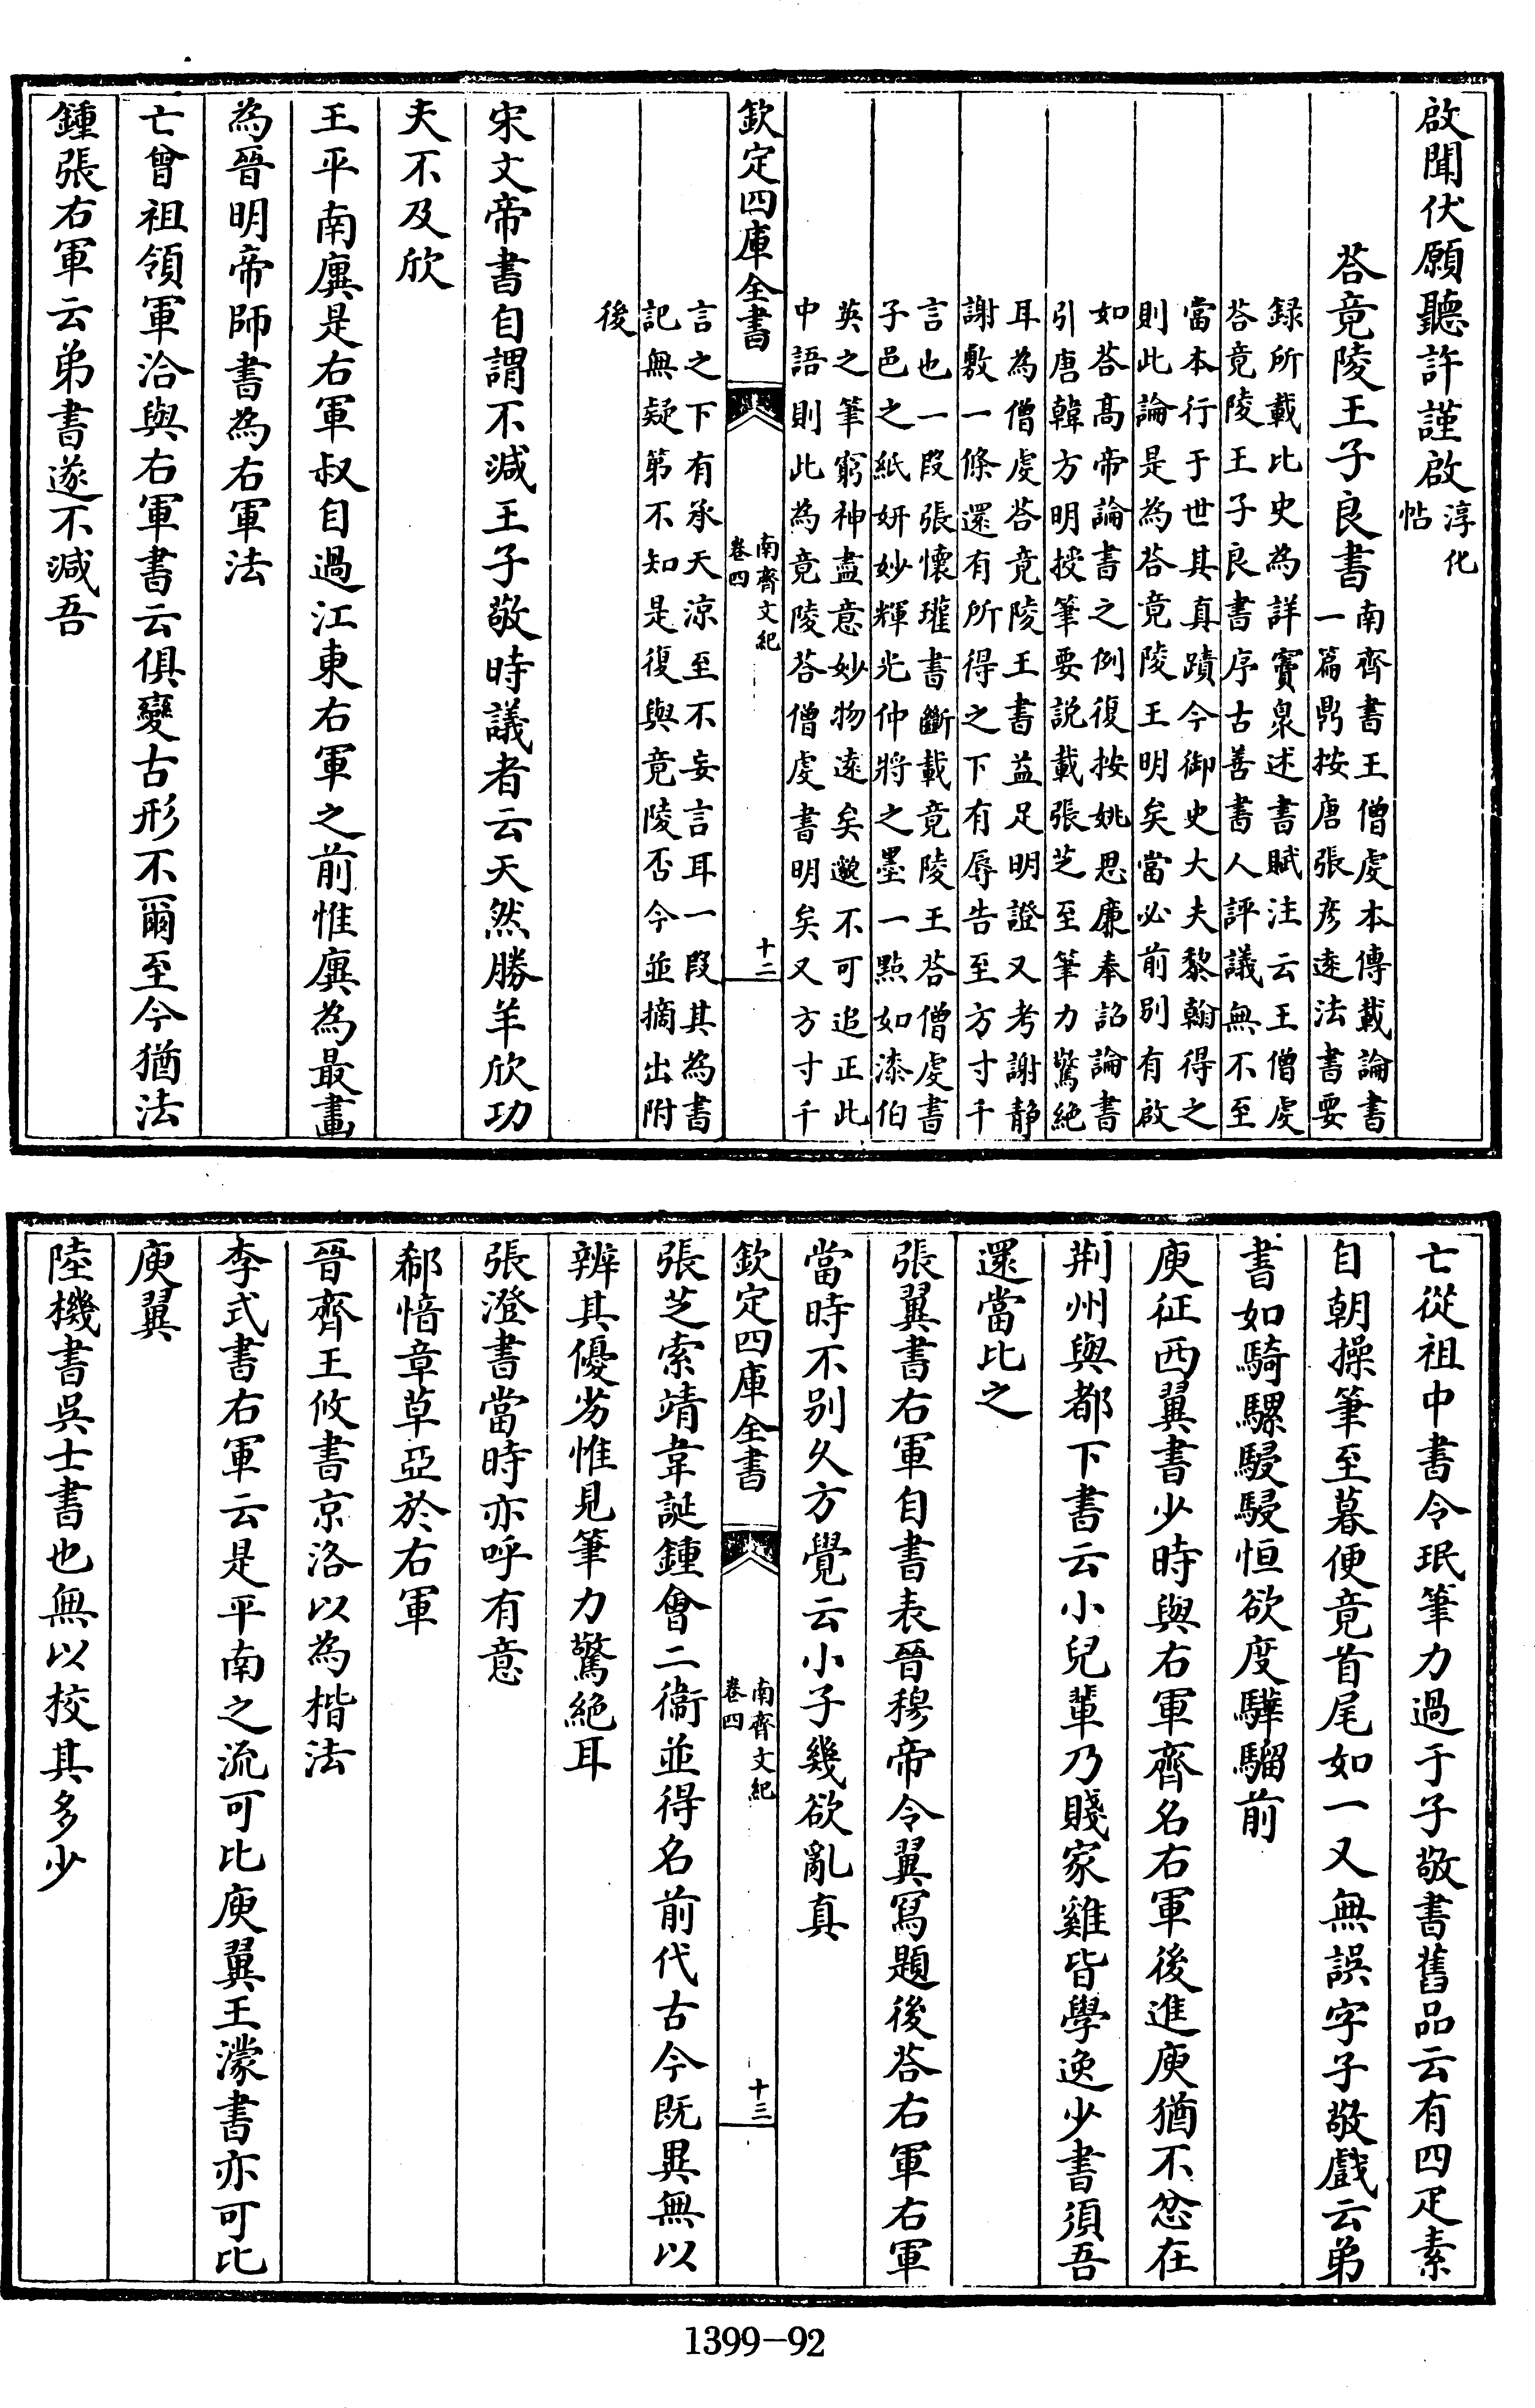 啟聞伏願聽許謹啟淳化
帖
荅竟陵王子良書南齊書王僧虔本傳載論書
一篇鼎按唐張彦逺法書要
録所載比史為詳竇泉述書賦注云王僧虔
荅竟陵王子良書序古善書人評議無不至
當本行于世其真蹟今御史大夫黎翰得之
則此論是為荅竟陵王明矣當必前别有啟
如荅髙帝論書之例復按姚思廉奉詔論書
引唐韓方明授筆要説載張芝至筆力驚絶
耳為僧虔荅竟陵王書益足明證又考謝静
謝敷一條還有所得之下有辱告至方寸千
言也一段張懷瓘書斷載竟陵王荅僧虔書
子邑之紙妍妙輝光仲將之墨一點如漆伯
英之筆窮神盡意妙物逺矣邈不可追正此
中語則此為竟陵荅僧虔書明矣又方寸千
欽定四庫全書
南齊文紀
卷四
十二
言之下有承天涼至不妄言耳一段其為書
記無疑第不知是復與竟陵否今並摘出附
後
宋文帝書自謂不減王子敬時議者云天然勝羊欣功
夫不及欣
王平南廙是右軍叔自過江東右軍之前惟廙為最畫
為晉明帝師書為右軍法
亡曾祖領軍洽與右軍書云俱變古形不爾至今猶法
鍾張右軍云弟書遂不減吾
亡從祖中書令珉筆力過于子敬書舊品云有四疋素
自朝操筆至暮便竟首尾如一又無誤字子敬戲云弟
書如騎騾駸駸恒欲度驊騮前
庾征西翼書少時與右軍齊名右軍後進庾猶不忿在
荆州與都下書云小兒輩乃賤家雞皆學逸少書須吾
還當比之
張翼書右軍自書表晉穆帝令翼寫題後荅右軍右軍
當時不别久方覺云小子幾欲亂真
欽定四庫全書
南齊文紀
卷四
十三
張芝索靖韋誕鍾會二衞並得名前代古今既異無以
辨其優劣惟見筆力驚絶耳
張澄書當時亦呼有意
郗愔章草亞於右軍
晉齊王攸書京洛以為楷法
李式書右軍云是平南之流可比庾翼王濛書亦可比
庾翼
陸機書吳士書也無以校其多少
1399-92